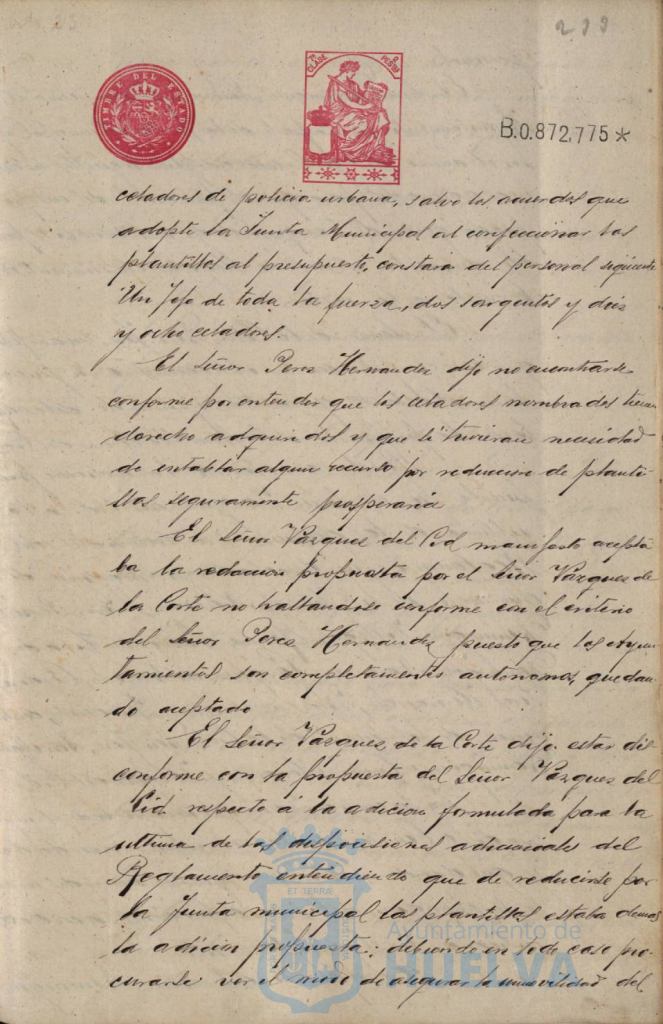 299
TIMBRE DEL ESTADO
7ª CLASE
PESTAS
B.0.872,775*
celadores de policia urbana, salvo los acuerdos que
adopte la Junta Municipal al confeccionar las
plantillas al presupuesto, constará del personal siguiente
Un Jefe de toda la fuerza, dos sargentos y diez
y ocho celadores.
El Señor Perez Hernandez dijo no encontrarse
conforme por entender que los celadores nombrados tienen
derecho adquiridos y que si tuvieran necesidad
de entablar algun recurso por reduccion de planti-
llas seguramente prosperaria
El Señor Vazquez del Cid manifesto acepta
ba la redaccion propuesta por el Señor Vazquez de
la Corte no hallandose conforme con el criterio
del Señor Perez Hernandez puesto que los Ayun
tamientos son completamente autonomos, quedan
do aceptado
El Señor Vazquez de la Corte dijo estar dis
conforme con la propuesta del Señor Vazquez del
Cid respecto á la adicion formulada para la
ultima de las disposiciones adicionales del
Reglamento entendiendo que de reducirse por
la Junta municipal las plantillas estaba demas
la adicion propuesta; debiendo en todo caso pro-
curarse ver el medio de asegurar la inmovilidad del
ET TERRÆ
Ayuntamiento de
HUELVA